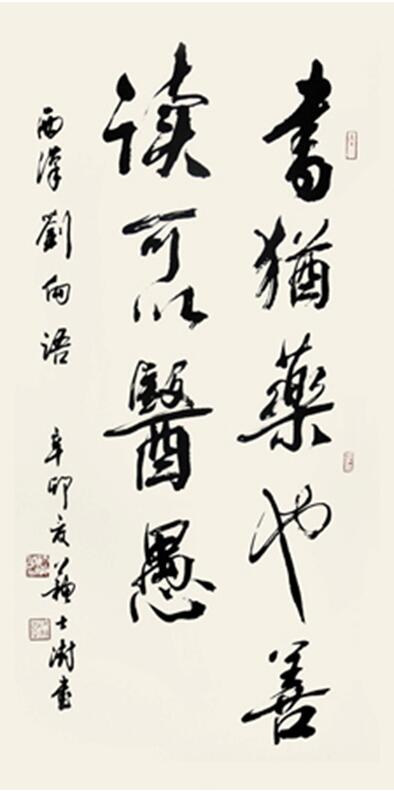 書猶薬也善
读可以醫愚
西漢劉向語
辛卯夏 蘇士澍書